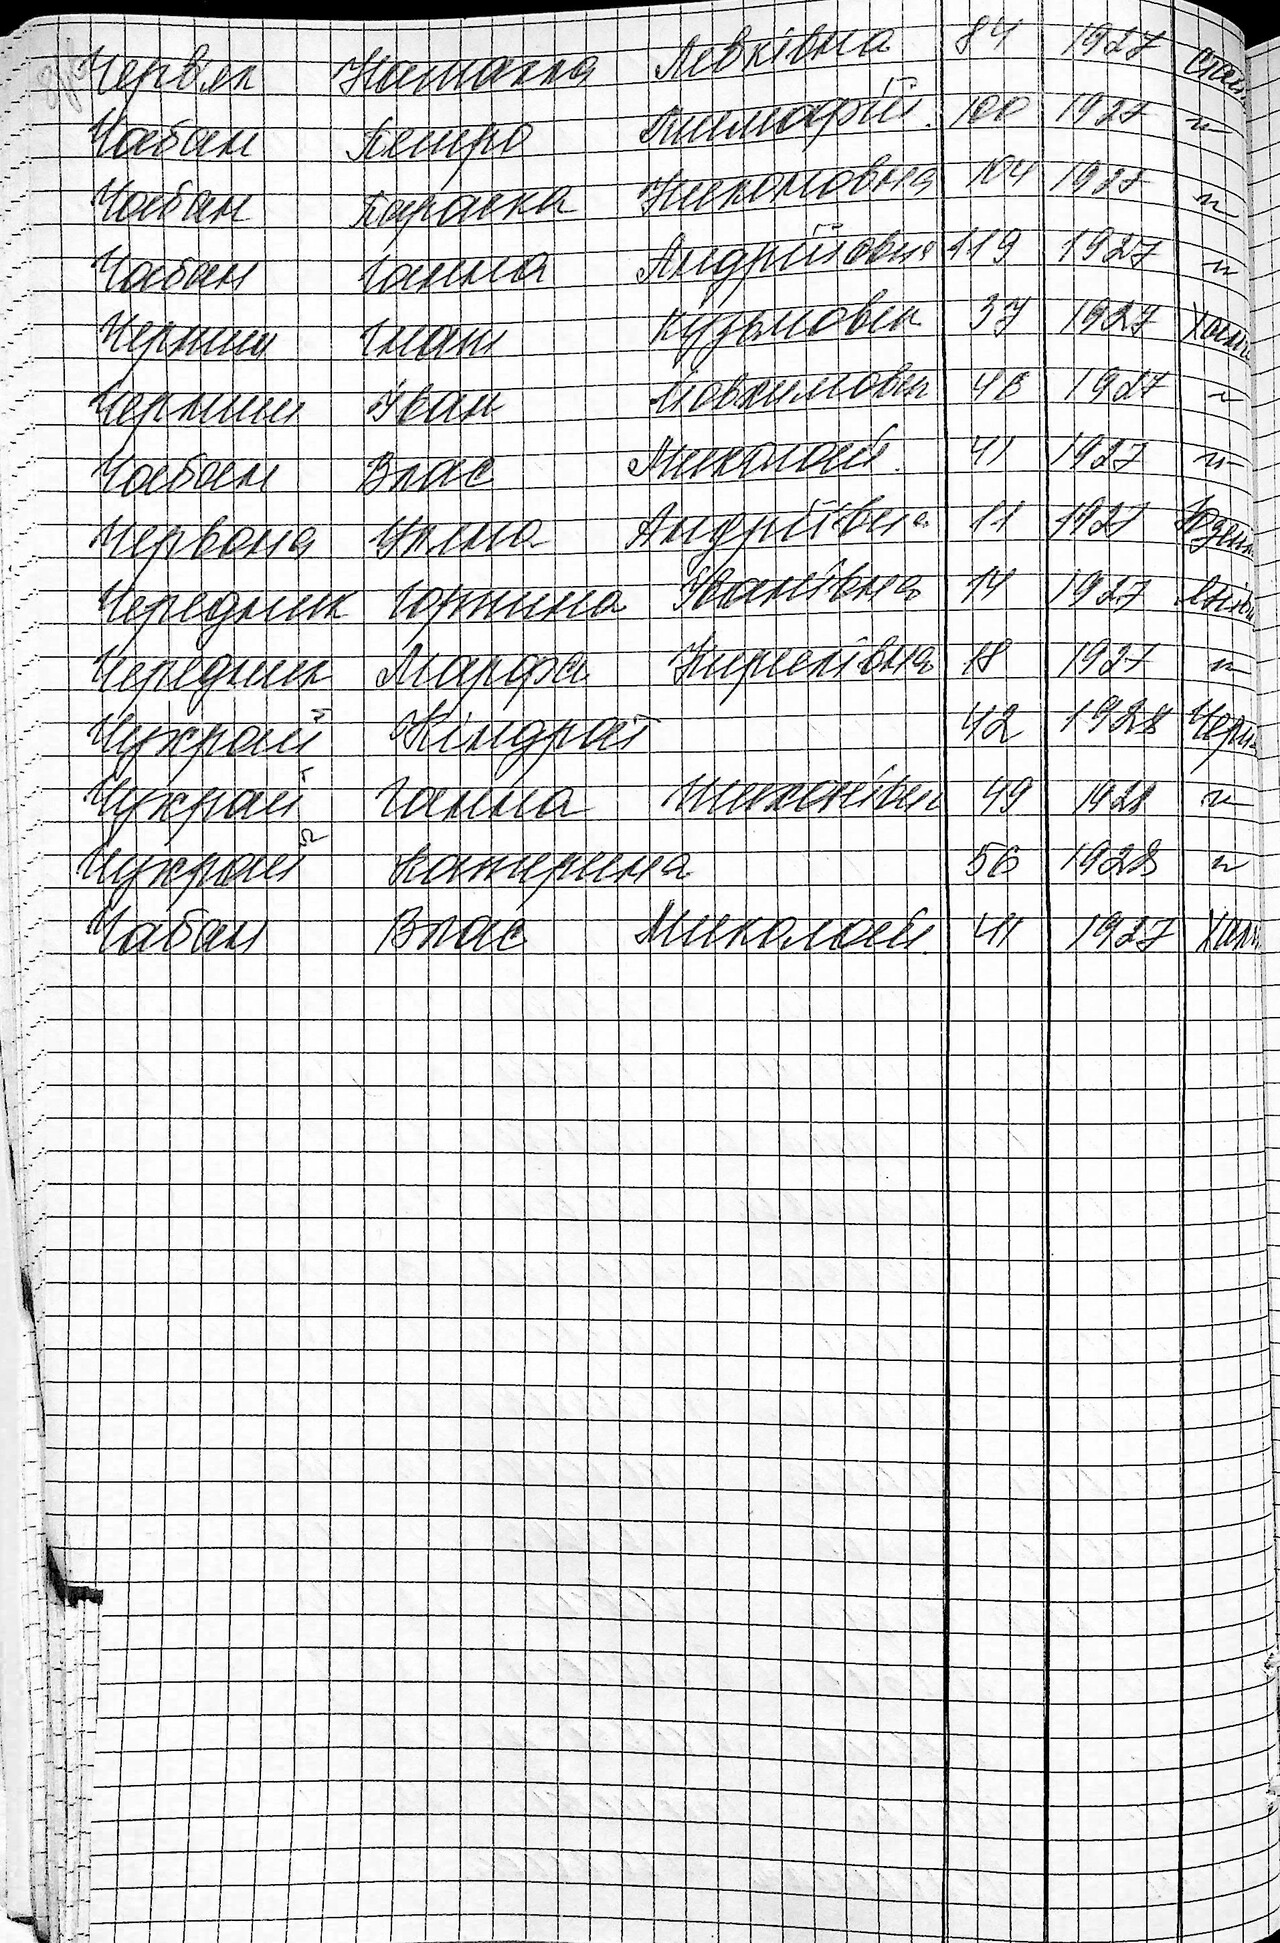 Черв'як Наталка Левківна 84 1927
Чабан Петро Тимофій. 100 1927 "
Чабан Параска Никоновна 104 1927 "
Чабан Ганна Андрійовна 119 1927 "
Черниш Гнат Кузьмович 37 1927
Черниш Іван 48 1927 "
Чабан Влас Миколай. 41 1927 "
Червона Уляна Андріївна 11 1927
Чередник Горпина Іванівна 14 1927
Чередник Марфа Кирилівна 18 1927 "
Чухрай Кіндрат 42 1928
Чухрай Ганна 49 1928 "
Чухрай Катерина 56 1928 "
Чабан Влас Миколай. 41 1927